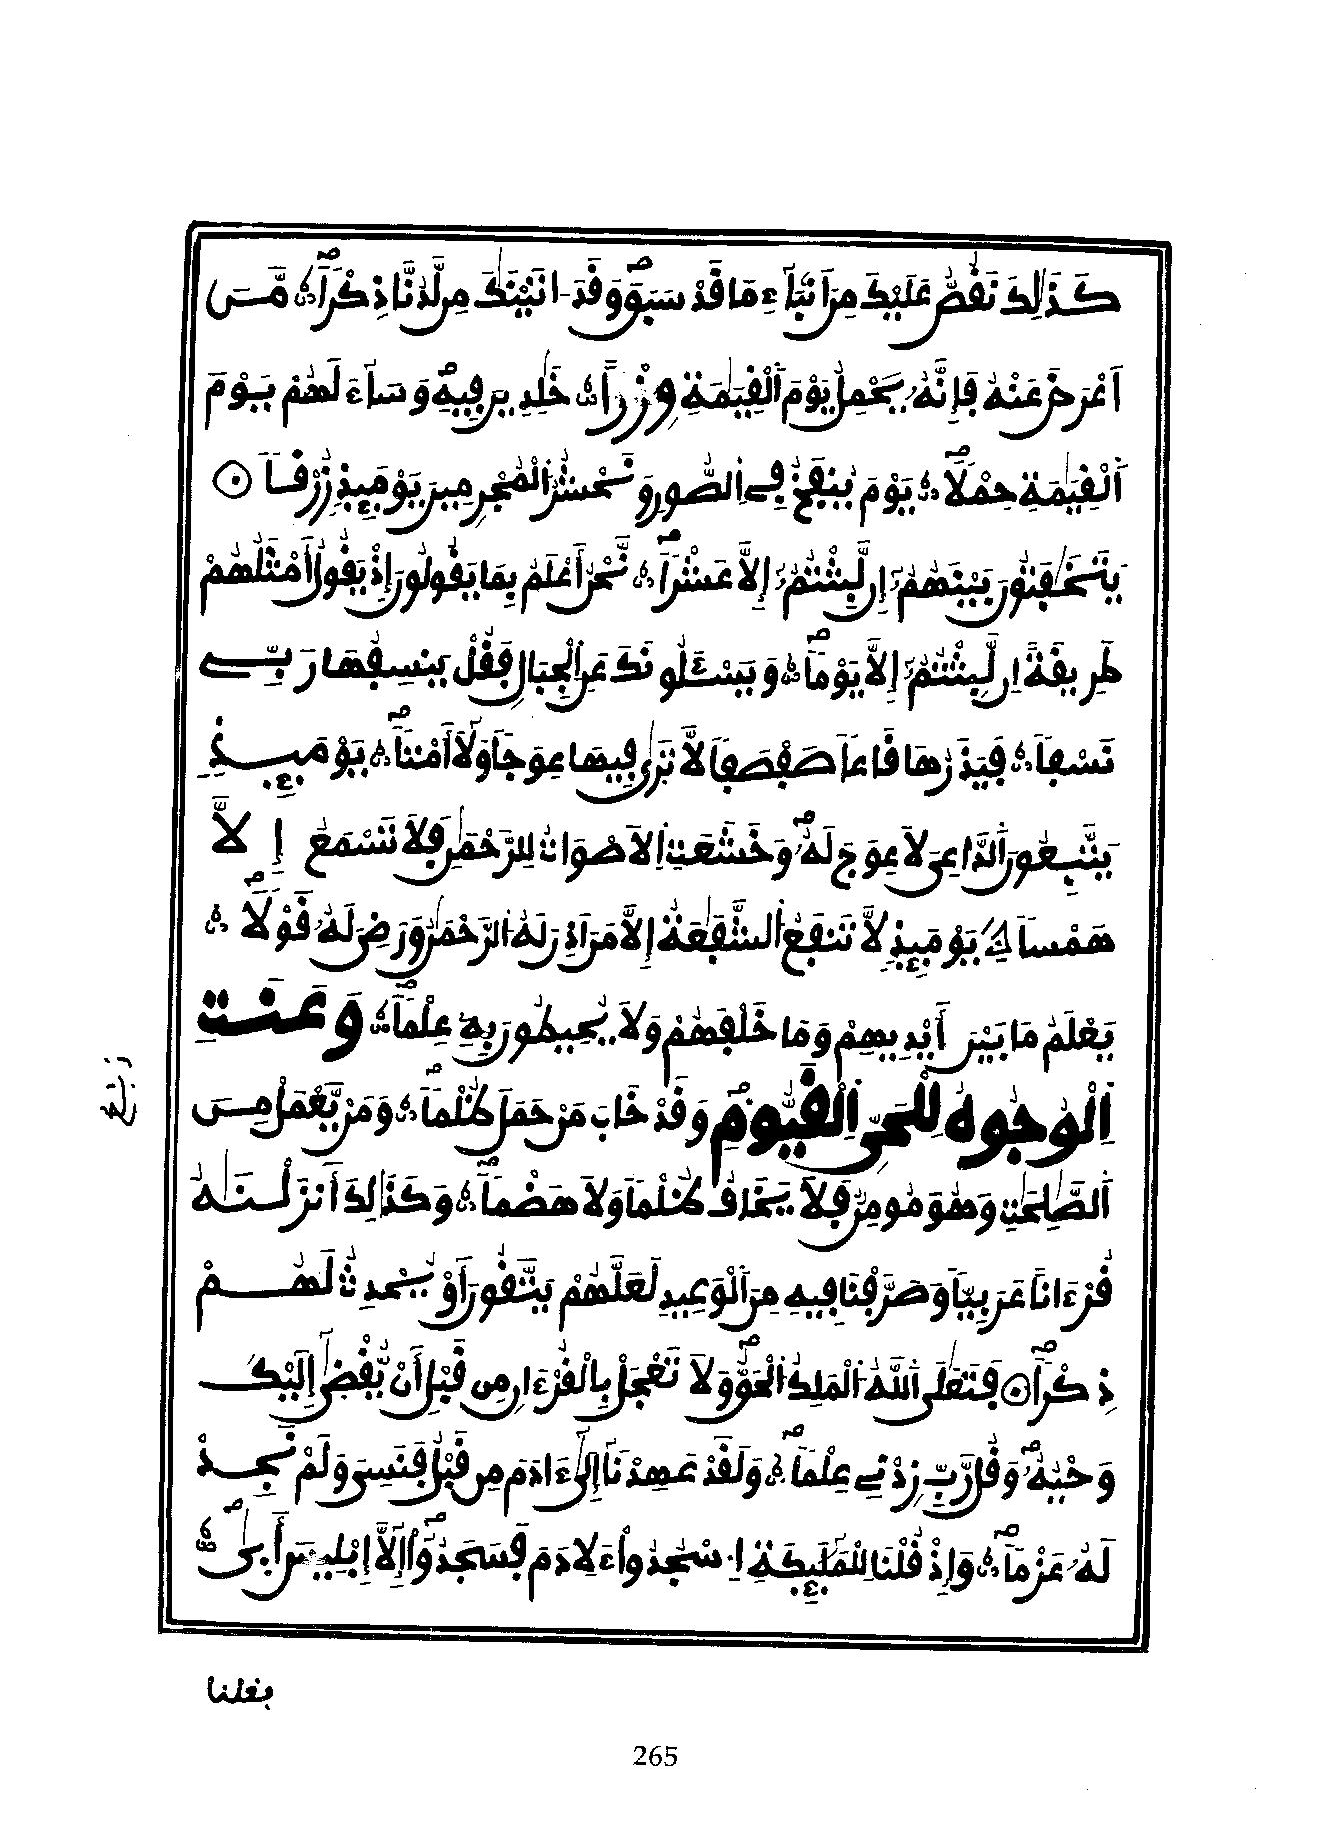 كَذَٰلِكَ نَقُصُّ عَلَيْكَ مِنَ اَنۢبَآءِ مَا قَدْ سَبَقَۖ وَقَدَ اٰتَيْنَٰكَ مِن لَّدُنَّا ذِكْراٗۖ مَّنَ
اَعْرَضَ عَنْهُ فَإِنَّهُۥ يَحْمِلُ يَوْمَ اَ۬لْقِيَٰمَةِ وِزْراً خَٰلِدِينَ فِيهِۖ وَسَآءَ لَهُمْ يَوْمَ
اَ۬لْقِيَٰمَةِ حِمْلاٗۖ يَوْمَ يُنفَخُ فِے اِ۬لصُّورِ وَنَحْشُرُ اُ۬لْمُجْرِمِينَ يَوْمَئِذٖ زُرْقاٗ
يَتَخَٰفَتُونَ بَيْنَهُمُۥٓ إِن لَّبِثْتُمُۥٓ إِلَّا عَشْراٗۖ نَّحْنُ أَعْلَمُ بِمَا يَقُولُونَ إِذْ يَقُولُ أَمْثَلُهُمْ
طَرِيقَةً اِن لَّبِثْتُمُۥٓ إِلَّا يَوْماٗۖ وَيَسْـَٔلُونَكَ عَنِ اِ۬لْجِبَالِ فَقُلْ يَنسِفُهَا رَبِّے
نَسْفاٗ فَيَذَرُهَا قَاعاٗ صَفْصَفاٗ لَّا تَر۪ىٰ فِيهَا عِوَجاٗ وَلَآ أَمْتاٗۖ يَوْمَئِذٖ
يَتَّبِعُونَ اَ۬لدَّاعِيَ لَا عِوَجَ لَهُۥۖ وَخَشَعَتِ اِ۬لَاصْوَاتُ لِلرَّحْمَٰنِ فَلَا تَسْمَعُ إِلَّا
هَمْساٗ يَوْمَئِذٖ لَّا تَنفَعُ اُ۬لشَّفَٰعَةُ إِلَّا مَنَ اَذِنَ لَهُ اُ۬لرَّحْمَٰنُ وَرَضِيَ لَهُۥ قَوْلاٗۖ
يَعْلَمُ مَا بَيْنَ أَيْدِيهِمْ وَمَا خَلْفَهُمْ وَلَا يُحِيطُونَ بِهِۦ عِلْماٗۖ وَعَنَتِ
اِ۬لْوُجُوهُ لِلْحَيِّ اِ۬لْقَيُّومِۖ وَقَدْ خَابَ مَنْ حَمَلَ ظُلْماٗۖ وَمَنْ يَّعْمَلْ مِنَ
اَ۬لصَّٰلِحَٰتِ وَهُوَ مُومِنٞ فَلَا يَخَافُ ظُلْماٗ وَلَا هَضْماٗۖ وَكَذَٰلِكَ أَنزَلْنَٰهُ
قُرْءَاناً عَرَبِيّاٗ وَصَرَّفْنَا فِيهِ مِنَ اَ۬لْوَعِيدِ لَعَلَّهُمْ يَتَّقُونَ أَوْ يُحْدِثُ لَهُمْ
ذِكْراٗۖ فَتَعَٰلَى اَ۬للَّهُ اُ۬لْمَلِكُ اُ۬لْحَقُّۖ وَلَا تَعْجَلْ بِالْقُرْءَانِ مِن قَبْلِ أَنْ يُّقْض۪ىٰٓ إِلَيْكَ
وَحْيُهُۥۖ وَقُل رَّبِّ زِدْنِے عِلْماٗۖ وَلَقَدْ عَهِدْنَآ إِلَىٰٓ ءَادَمَ مِن قَبْلُ فَنَسِيَ وَلَمْ نَجِدْ
لَهُۥ عَزْماٗۖ وَإِذْ قُلْنَا لِلْمَلَٰٓئِكَةِ اِ۟سْجُدُواْ ءِلَادَمَ فَسَجَدُوٓاْ إِلَّآ إِبْلِيسَ أَب۪ىٰۖ
ربع
فقلنا
265